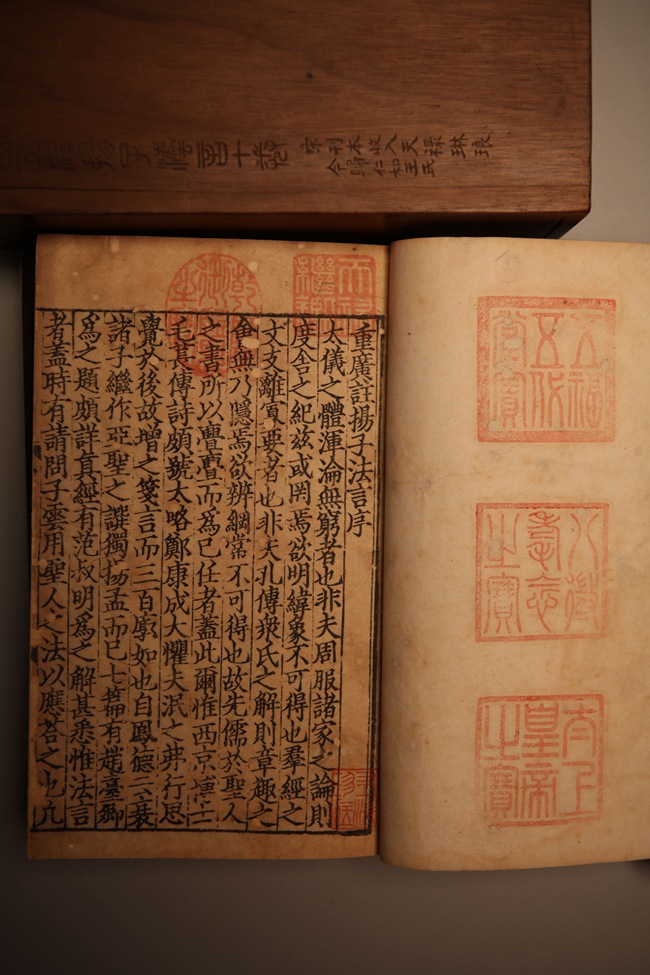 揚子法言十卷
宋刊本收入天祿琳琅
今歸仁和王氏
五福
五代
堂寶
八徵
耄念
之寶
太上
皇帝
之寶
天祿
繼鑑
乾隆
御覽
之寶
重廣註揚子法言序
太儀之體渾淪無窮者也非夫周服諸家之論則
度舍之紀茲或罔焉欲明緯象不可得也羣經之
文支離寡要者也非夫孔傳衆氏之解則章趣之
會無乃隱焉欲辨綱常不可得也故先儒於聖人
之書所以亹亹而為已任者蓋此爾惟西京博士
毛萇傳詩頗號太略鄭康成大懼夫泯之莽行思
覺於後故增之箋言而三百廓如也自鳳德云衰
諸子繼作亞聖之譔獨揚孟而已七篇有趙臺卿
為之題頗詳真經有范叔明為之解甚悉惟法言
者蓋時有請問子雲用聖人之法以應荅之也凡